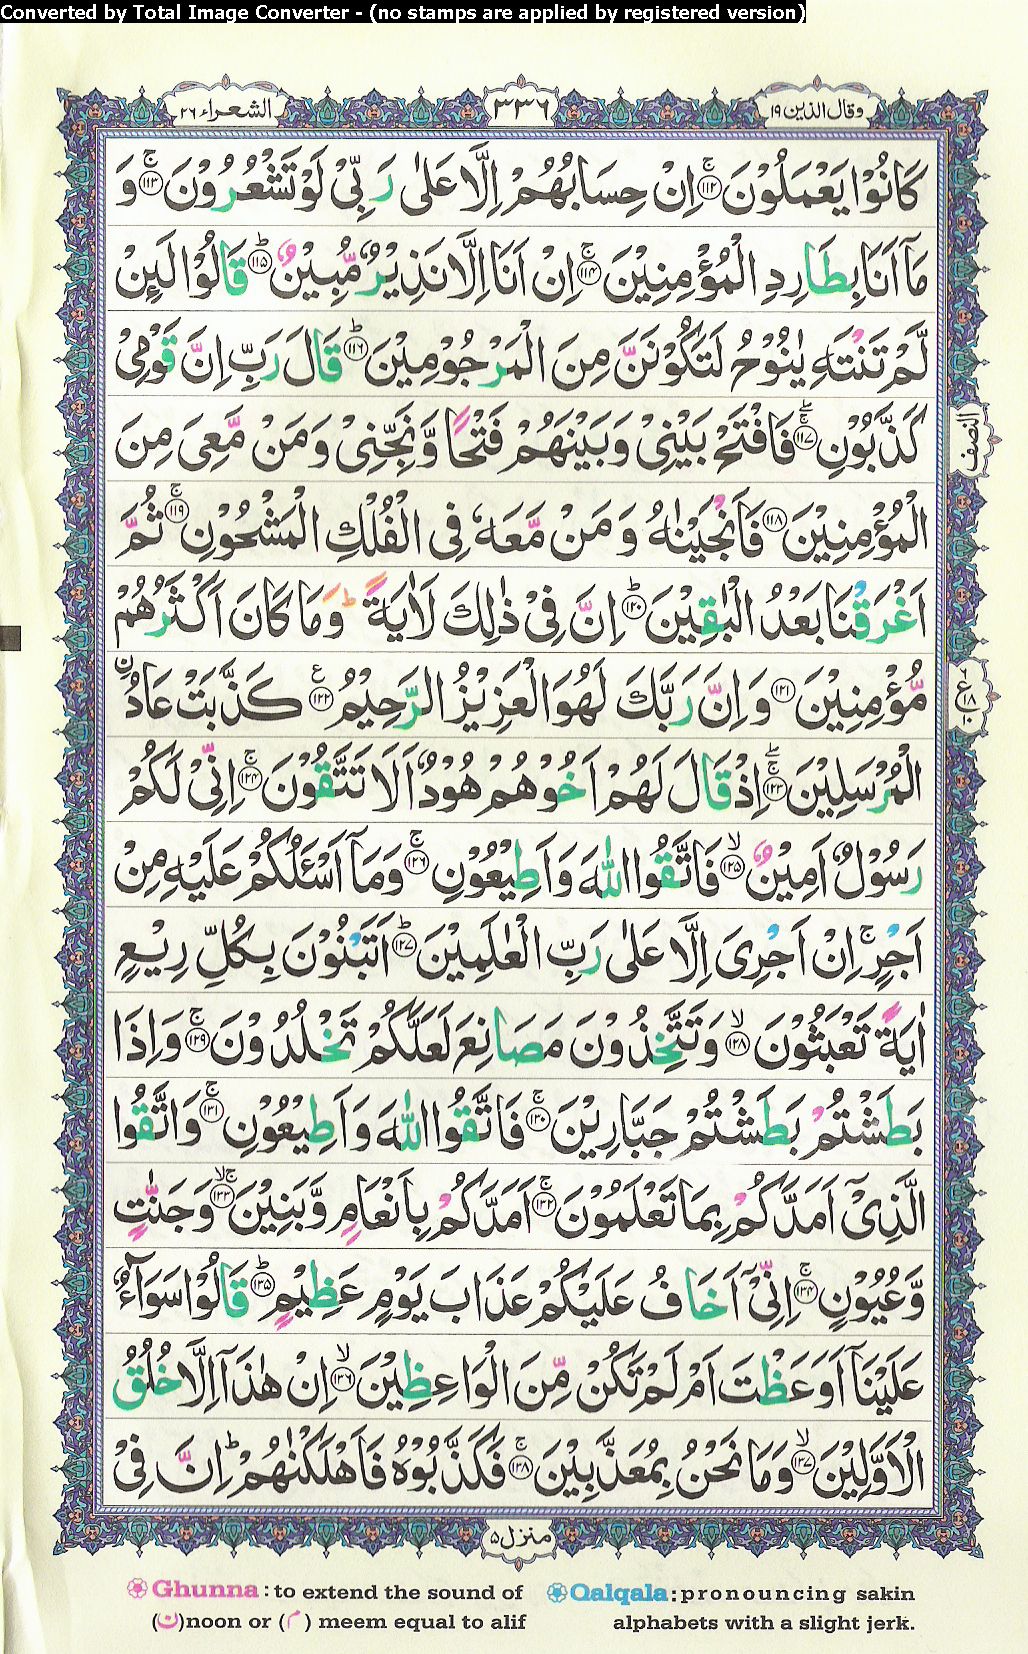 Converted by Total Image Converter - (no stamps are applied by registered version)
وقال الذین ۱۹
۳۳۶
الشعراء ۲۶
كَانُوْا يَعْمَلُوْنَ ۚ﴿۱۱۲﴾ اِنْ حِسَابُهُمْ اِلَّا عَلٰى رَبِّىْ لَوْ تَشْعُرُوْنَ ۚ﴿۱۱۳﴾ وَ
مَاۤ اَنَا بِطَارِدِ الْمُؤْمِنِيْنَ ۚ﴿۱۱۴﴾ اِنْ اَنَا اِلَّا نَذِيْرٌ مُّبِيْنٌ ؕ﴿۱۱۵﴾ قَالُوْا لَىِٕنْ
لَّمْ تَنْتَهِ يٰنُوْحُ لَتَكُوْنَنَّ مِنَ الْمَرْجُوْمِيْنَ ؕ﴿۱۱۶﴾ قَالَ رَبِّ اِنَّ قَوْمِىْ
كَذَّبُوْنِ ۚۖ﴿۱۱۷﴾ فَافْتَحْ بَيْنِىْ وَبَيْنَهُمْ فَتْحًا وَّنَجِّنِىْ وَمَنْ مَّعِىَ مِنَ
النصف
الْمُؤْمِنِيْنَ ﴿۱۱۸﴾ فَاَنْجَيْنٰهُ وَمَنْ مَّعَهٗ فِى الْفُلْكِ الْمَشْحُوْنِ ۚ﴿۱۱۹﴾ ثُمَّ
اَغْرَقْنَا بَعْدُ الْبٰقِيْنَ ؕ﴿۱۲۰﴾ اِنَّ فِىْ ذٰلِكَ لَاٰيَةً ؕ وَمَا كَانَ اَكْثَرُهُمْ
مُّؤْمِنِيْنَ ﴿۱۲۱﴾ وَاِنَّ رَبَّكَ لَهُوَ الْعَزِيْزُ الرَّحِيْمُ ﴿۱۲۲﴾ ع كَذَّبَتْ عَادُ ۨ
ع ۱۸ ۱۰
الْمُرْسَلِيْنَ ۚۖ﴿۱۲۳﴾ اِذْ قَالَ لَهُمْ اَخُوْهُمْ هُوْدٌ اَلَا تَتَّقُوْنَ ۚ﴿۱۲۴﴾ اِنِّىْ لَكُمْ
رَسُوْلٌ اَمِيْنٌ ۙ﴿۱۲۵﴾ فَاتَّقُوا اللّٰهَ وَاَطِيْعُوْنِ ۚ﴿۱۲۶﴾ وَمَاۤ اَسْـَٔلُكُمْ عَلَيْهِ مِنْ
اَجْرٍ ۚ اِنْ اَجْرِىَ اِلَّا عَلٰى رَبِّ الْعٰلَمِيْنَ ؕ﴿۱۲۷﴾ اَتَبْنُوْنَ بِكُلِّ رِيْعٍ
اٰيَةً تَعْبَثُوْنَ ۙ﴿۱۲۸﴾ وَتَتَّخِذُوْنَ مَصَانِعَ لَعَلَّكُمْ تَخْلُدُوْنَ ۚ﴿۱۲۹﴾ وَاِذَا
بَطَشْتُمْ بَطَشْتُمْ جَبَّارِيْنَ ۚ﴿۱۳۰﴾ فَاتَّقُوا اللّٰهَ وَاَطِيْعُوْنِ ۚ﴿۱۳۱﴾ وَاتَّقُوا
الَّذِىْۤ اَمَدَّكُمْ بِمَا تَعْلَمُوْنَ ۚ﴿۱۳۲﴾ اَمَدَّكُمْ بِاَنْعَامٍ وَّبَنِيْنَ ۚۙ﴿۱۳۳﴾ وَجَنّٰتٍ
وَّعُيُوْنٍ ۚ﴿۱۳۴﴾ اِنِّىْۤ اَخَافُ عَلَيْكُمْ عَذَابَ يَوْمٍ عَظِيْمٍ ؕ﴿۱۳۵﴾ قَالُوْا سَوَآءٌ
عَلَيْنَاۤ اَوَعَظْتَ اَمْ لَمْ تَكُنْ مِّنَ الْوَاعِظِيْنَ ۙ﴿۱۳۶﴾ اِنْ هٰذَاۤ اِلَّا خُلُقُ
الْاَوَّلِيْنَ ۙ﴿۱۳۷﴾ وَمَا نَحْنُ بِمُعَذَّبِيْنَ ۚ﴿۱۳۸﴾ فَكَذَّبُوْهُ فَاَهْلَكْنٰهُمْ ؕ اِنَّ فِىْ
منزل ۵
Ghunna : to extend the sound of (ن)noon or (م) meem equal to alif
Qalqala : pronouncing sakin alphabets with a slight jerk.